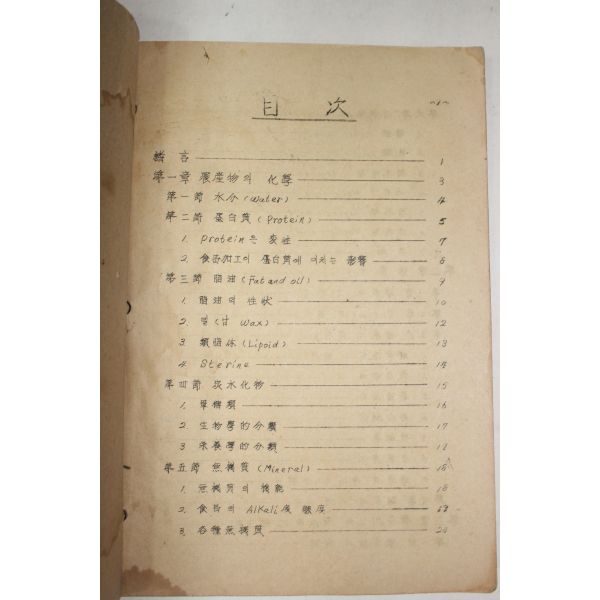 目 次
~1~
緖言 1
第一章 農産物의 化學 3
第一節 水分 (Water) 4
第二節 蛋白質 (Protein) 5
1. Protein은 変性 7
2. 食品加工이 蛋白質에 미치는 影響 8
第三節 脂油 (Fat and oil) 9
1. 脂油의 性狀 10
2. 밀(납 Wax) 12
3. 類脂体 (Lipoid) 13
4. Sterine 14
第四節 炭水化物 15
1. 單糖類 16
2. 生物學的分類 17
3. 栄養學的分類 17
第五節 無機質 (Mineral) 18
1. 無機質의 機能 18
2. 食品의 Alkali度 酸度
3. 各種無機質 20